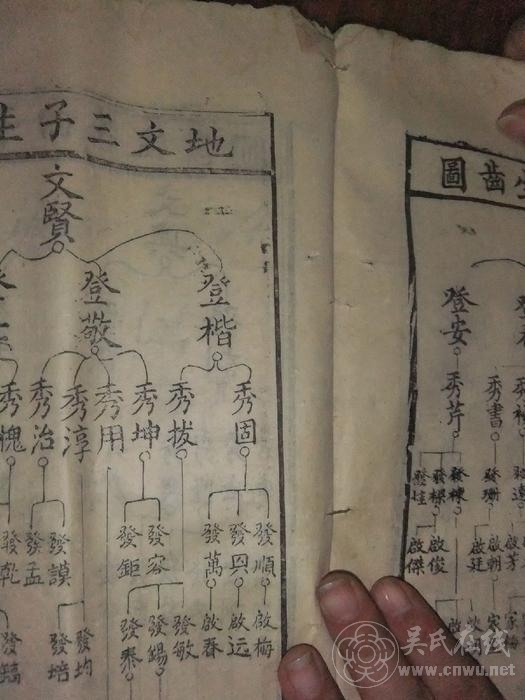 地文三子
文賢
登楷
登敬
秀固
秀拔
秀坤
秀用
秀淳
秀治
秀槐
發順
發興
發萬
發容
發鉅
發謨
發孟
發乾
啟梅
啟远
啟春
發敏
發錫
發泰
發均
發培
齒圖
登安
秀芹
秀書
發棟
發樑
發珊
啟俊
啟傑
啟朝
啟廷
吴氏在线
www.cnwu.net